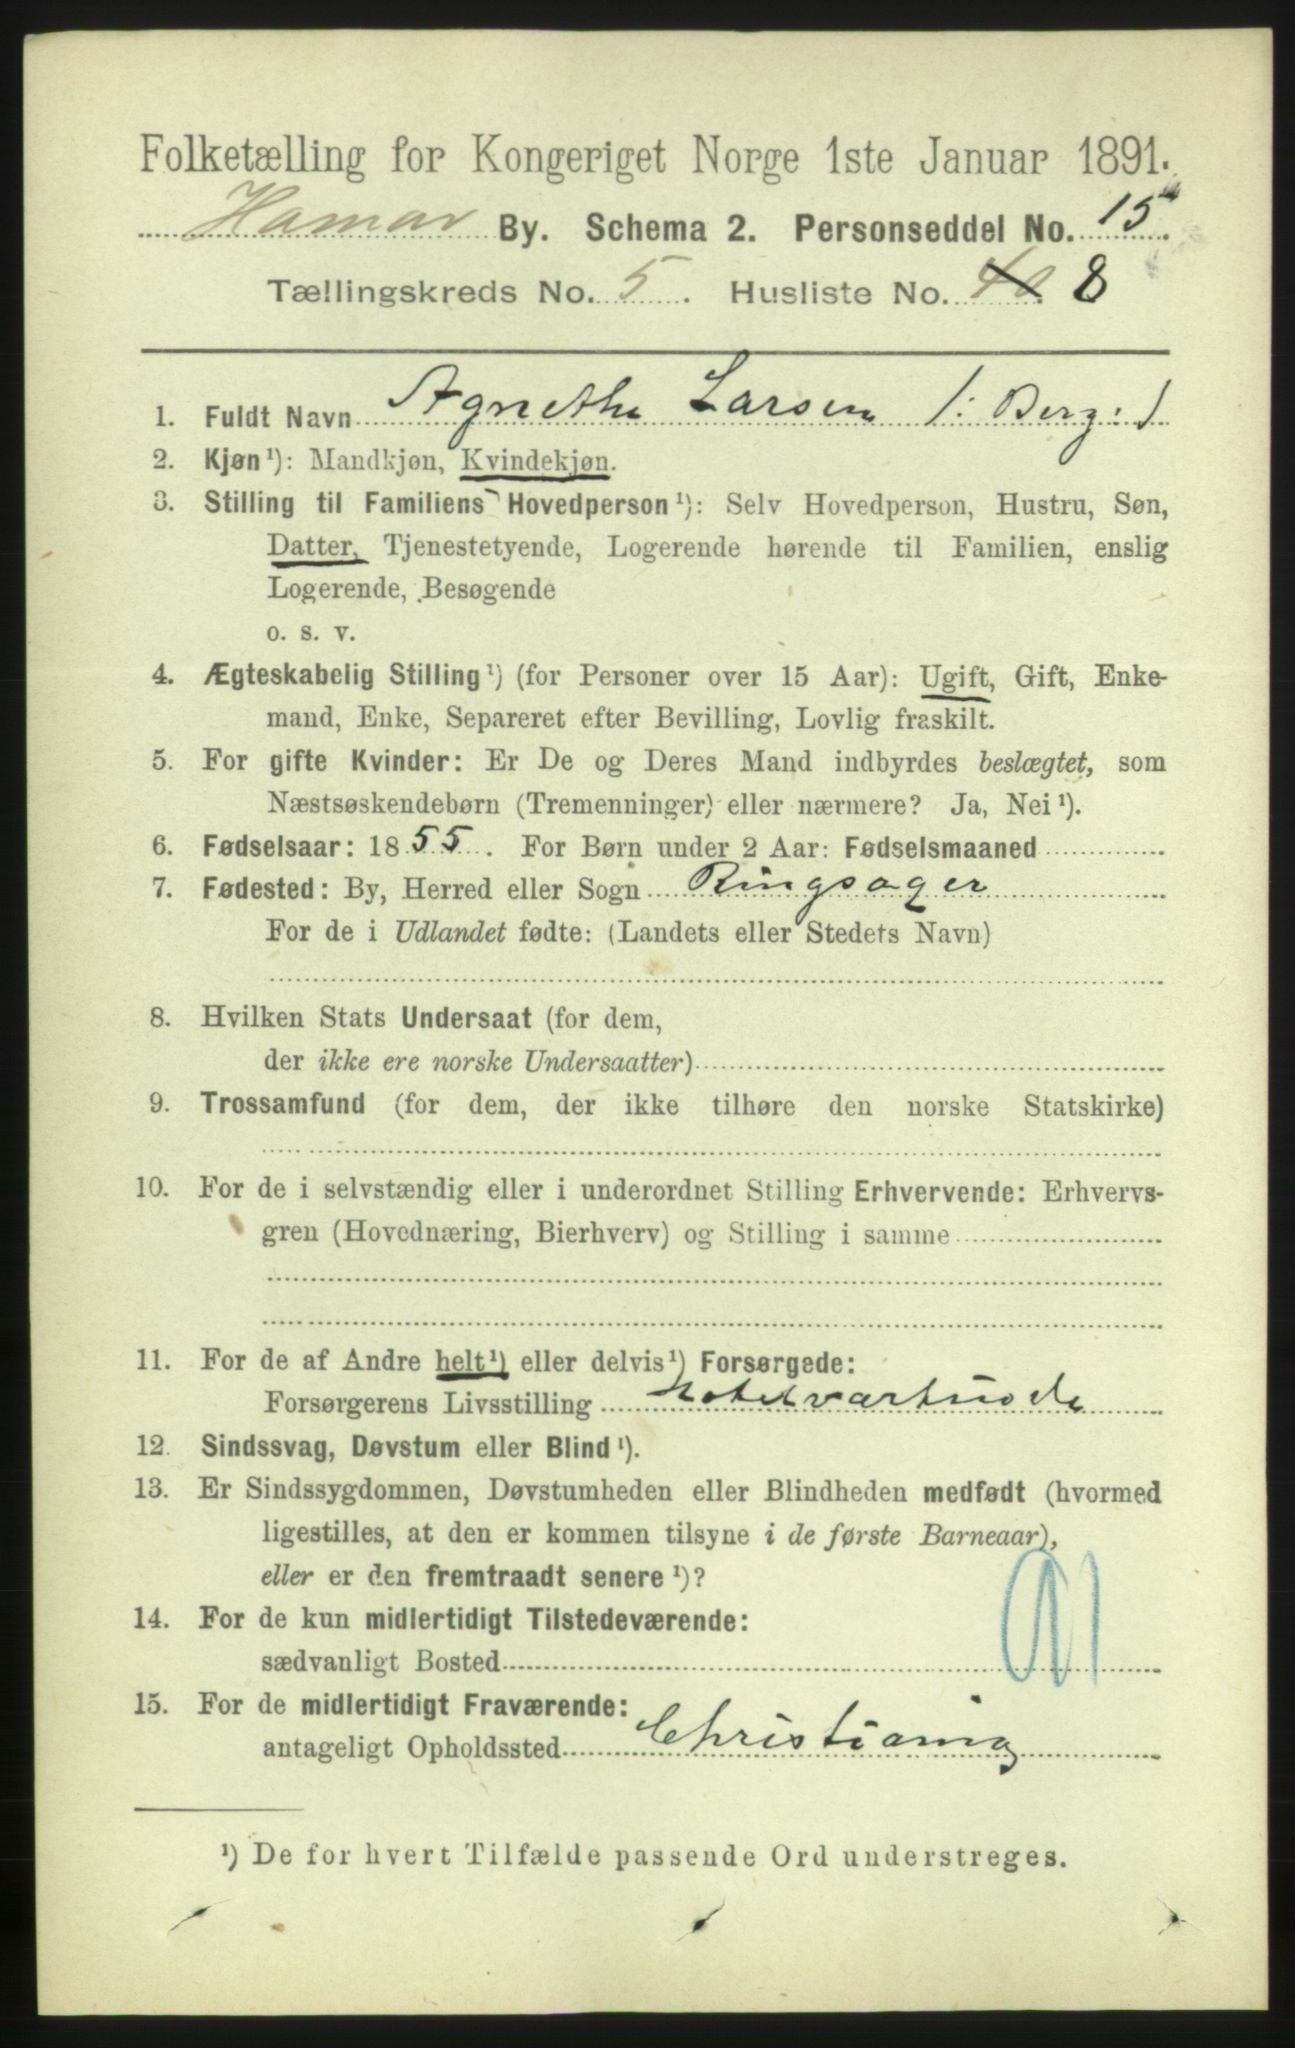 Folketælling for Kongeriget Norge 1ste Januar 1891.
Hamar By. Schema 2. Personseddel No. 15.
Tællingskreds No. 5. Husliste No. 8
1. Fuldt Navn Agnethe Larsen /: Berg :/
2. Kjøn¹): Mandkjøn, Kvindekjøn.
3. Stilling til Familiens Hovedperson¹): Selv Hovedperson, Hustru, Søn,
Datter, Tjenestetyende, Logerende hørende til Familien, enslig
Logerende, Besøgende
o. s. v.
4. Ægteskabelig Stilling¹) (for Personer over 15 Aar): Ugift, Gift, Enke-
mand, Enke, Separeret efter Bevilling, Lovlig fraskilt.
5. For gifte Kvinder: Er De og Deres Mand indbyrdes beslægtet, som
Næstsøskendebørn (Tremenninger) eller nærmere? Ja, Nei¹).
6. Fødselsaar: 1855. For Børn under 2 Aar: Fødselsmaaned
7. Fødested: By, Herred eller Sogn Ringsager
For de i Udlandet fødte: (Landets eller Stedets Navn)
8. Hvilken Stats Undersaat (for dem,
der ikke ere norske Undersaatter)
9. Trossamfund (for dem, der ikke tilhøre den norske Statskirke)
10. For de i selvstændig eller i underordnet Stilling Erhvervende: Erhvervs-
gren (Hovednæring, Bierhverv) og Stilling i samme
11. For de af Andre helt¹) eller delvis¹) Forsørgede:
Forsørgerens Livsstilling Hotelvertinde
12. Sindssvag, Døvstum eller Blind¹).
13. Er Sindssygdommen, Døvstumheden eller Blindheden medfødt (hvormed
ligestilles, at den er kommen tilsyne i de første Barneaar),
eller er den fremtraadt senere¹)?
14. For de kun midlertidigt Tilstedeværende:
sædvanligt Bosted
15. For de midlertidigt Fraværende:
antageligt Opholdssted Christiania
¹) De for hvert Tilfælde passende Ord understreges.